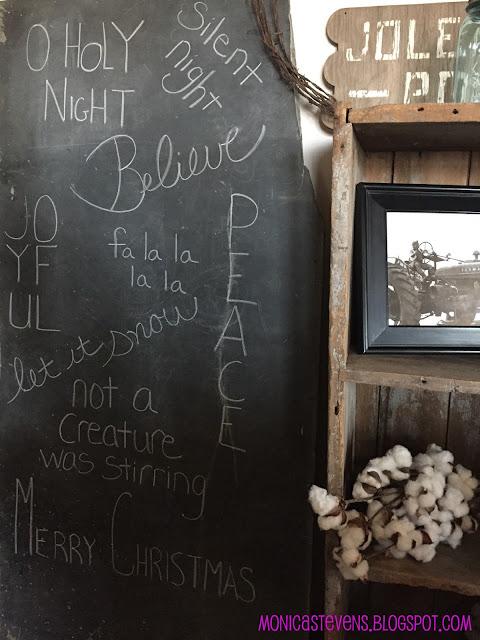 O HOLY
NIGHT
Silent
night
Believe
JO
YF
UL
fa la la
la la
P
E
A
C
E
let it snow
not a
creature
was stirring
MERRY CHRISTMAS
JOLE
MONICASTEVENS.BLOGSPOT.COM